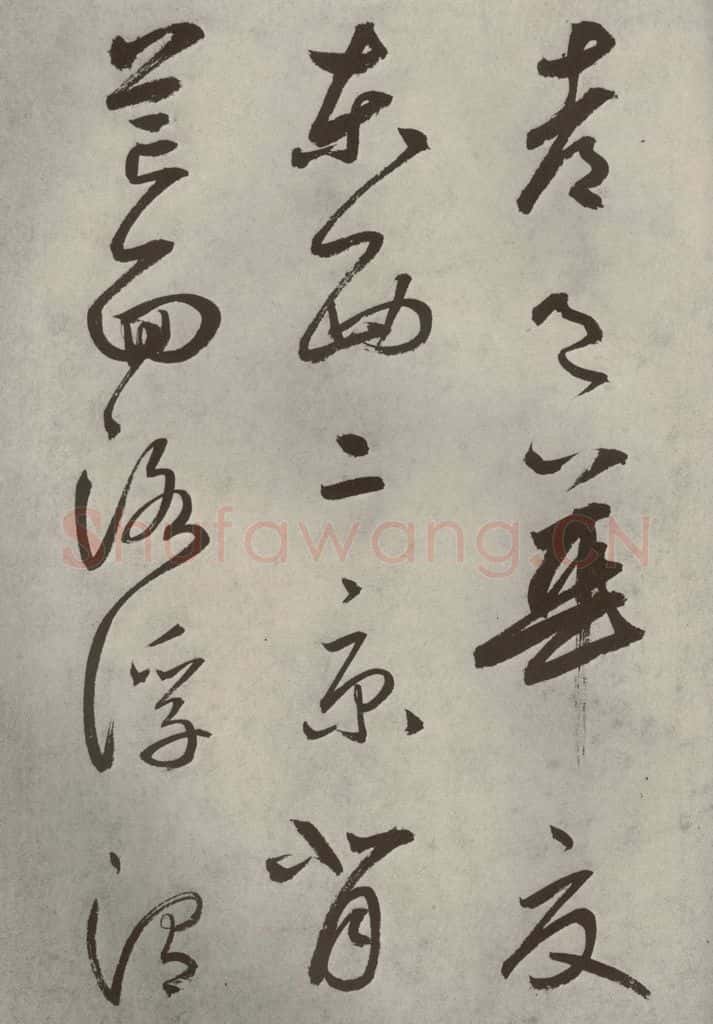 都邑華夏
東西二京背
芒面洛浮渭
Shufawang.CN